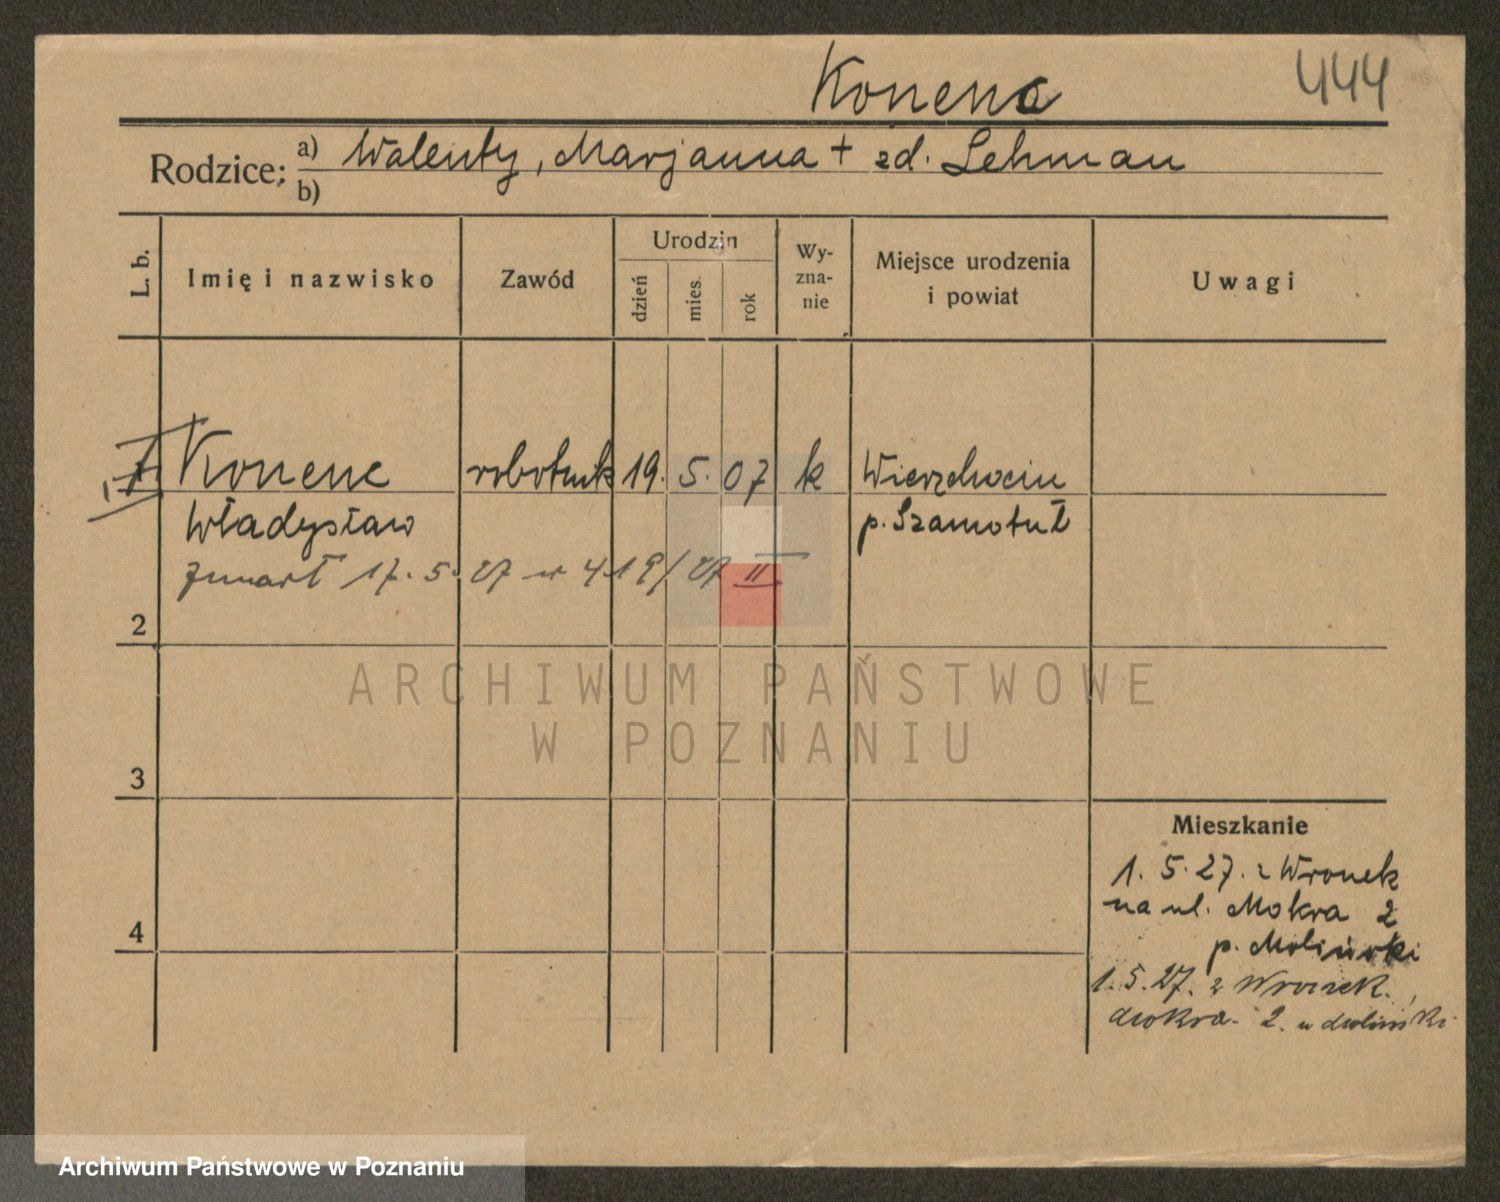 Konenc 444
Rodzice: a) Walenty, Marjanna + zd. Lehman
b)
L. b.
Imię i nazwisko
Zawód
Urodzin
dzień
mies.
rok
Wy-
zna-
nie
Miejsce urodzenia
i powiat
Uwagi
Konenc robotnik 19. 5. 07 k Wierzchocin
Władysław p. Szamotuł
zmarł 17. 5. 27 nr 419/27 II
2
ARCHIWUM PAŃSTWOWE
W POZNANIU
3
Mieszkanie
1. 5. 27. z Wronek
na ul. Mokra 2
4
p. Moliński
1. 5. 27. z Wronek.
Mokra. 2. u Moliński
Archiwum Państwowe w Poznaniu